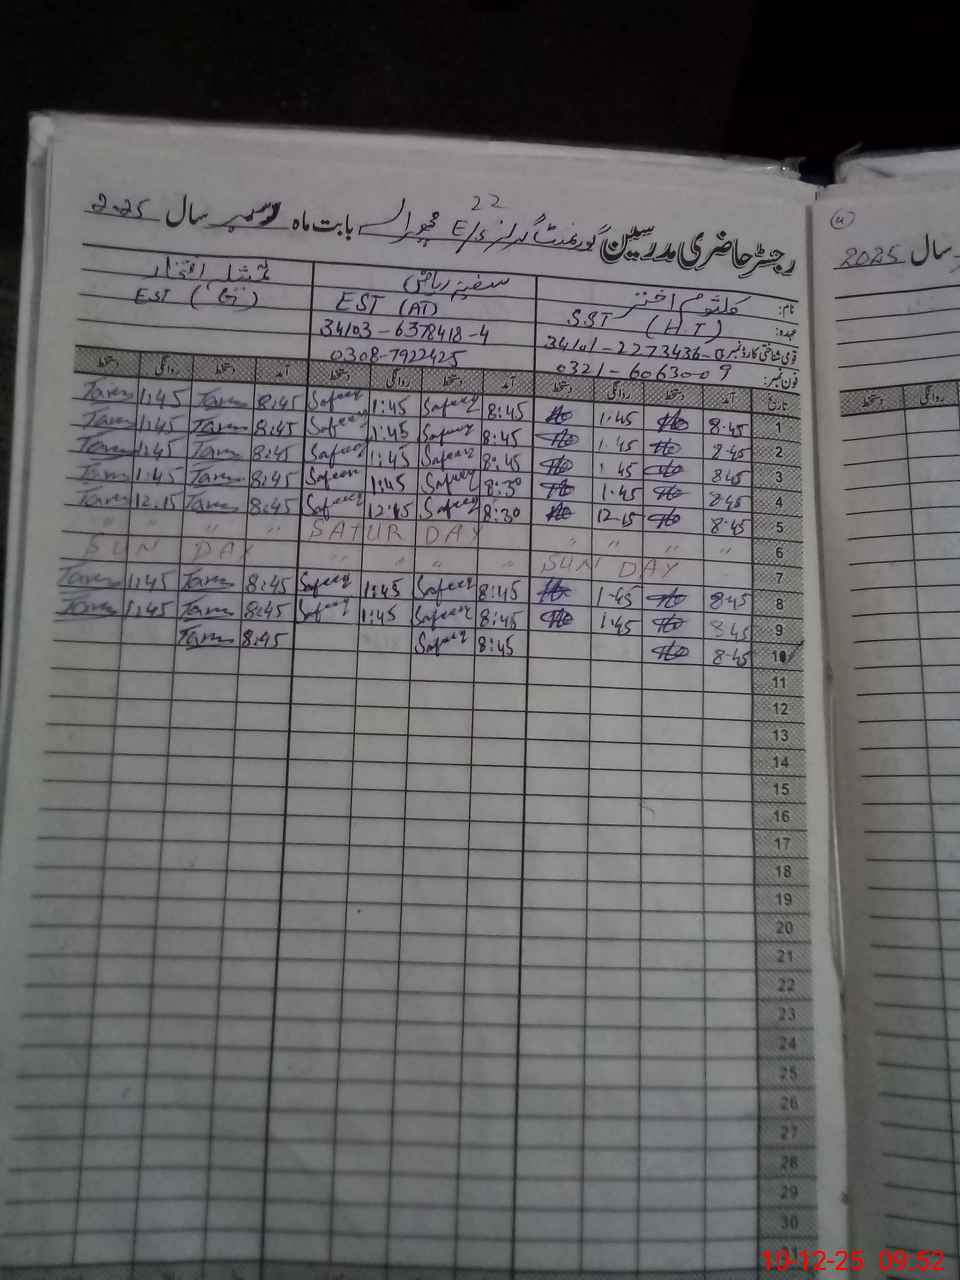 22
رجسٹر حاضری مدرسین گورنمنٹ گرلز E/S بابت ماہ دسمبر سال 2025
نام: کلثوم اختر سفینہ ریاض
عہدہ: SST (HT) EST (AT) EST (G)
قومی شناختی کارڈ نمبر 34101-2273436-0 34103-6378418-4
فون نمبر: 0321-6063009 0308-7922425
تاریخ آمد دستخط روانگی دستخط آمد دستخط روانگی دستخط آمد دستخط روانگی دستخط
1 8.45 1.45 8:45 Safeer 1:45 Safeer 8:45 1:45
2 8.45 1.45 8:45 Safeer 1:45 Safeer 8:45 1:45
3 8.45 1.45 8:45 Safeer 1:45 Safeer 8:45 1:45
4 8.45 1.45 8:30 Safeer 1:45 Safeer 8:45 1:45
5 8.45 12.15 8:30 Safeer 12:15 Safeer 8:45 12.15
6 " " " " SATURDAY " " " "
7 SUNDAY " " " " SUN DAY
8 8.45 1.45 8:45 Safeer 1:45 Safeer 8:45 1:45
9 8.45 1.45 8:45 Safeer 1:45 Safeer 8:45 1:45
10 8.45 8:45 Safeer 8:45
11
12
13
14
15
16
17
18
19
20
21
22
23
24
25
26
27
28
29
30
31
سال 2025
روانگی دستخط
10-12-25 09:52